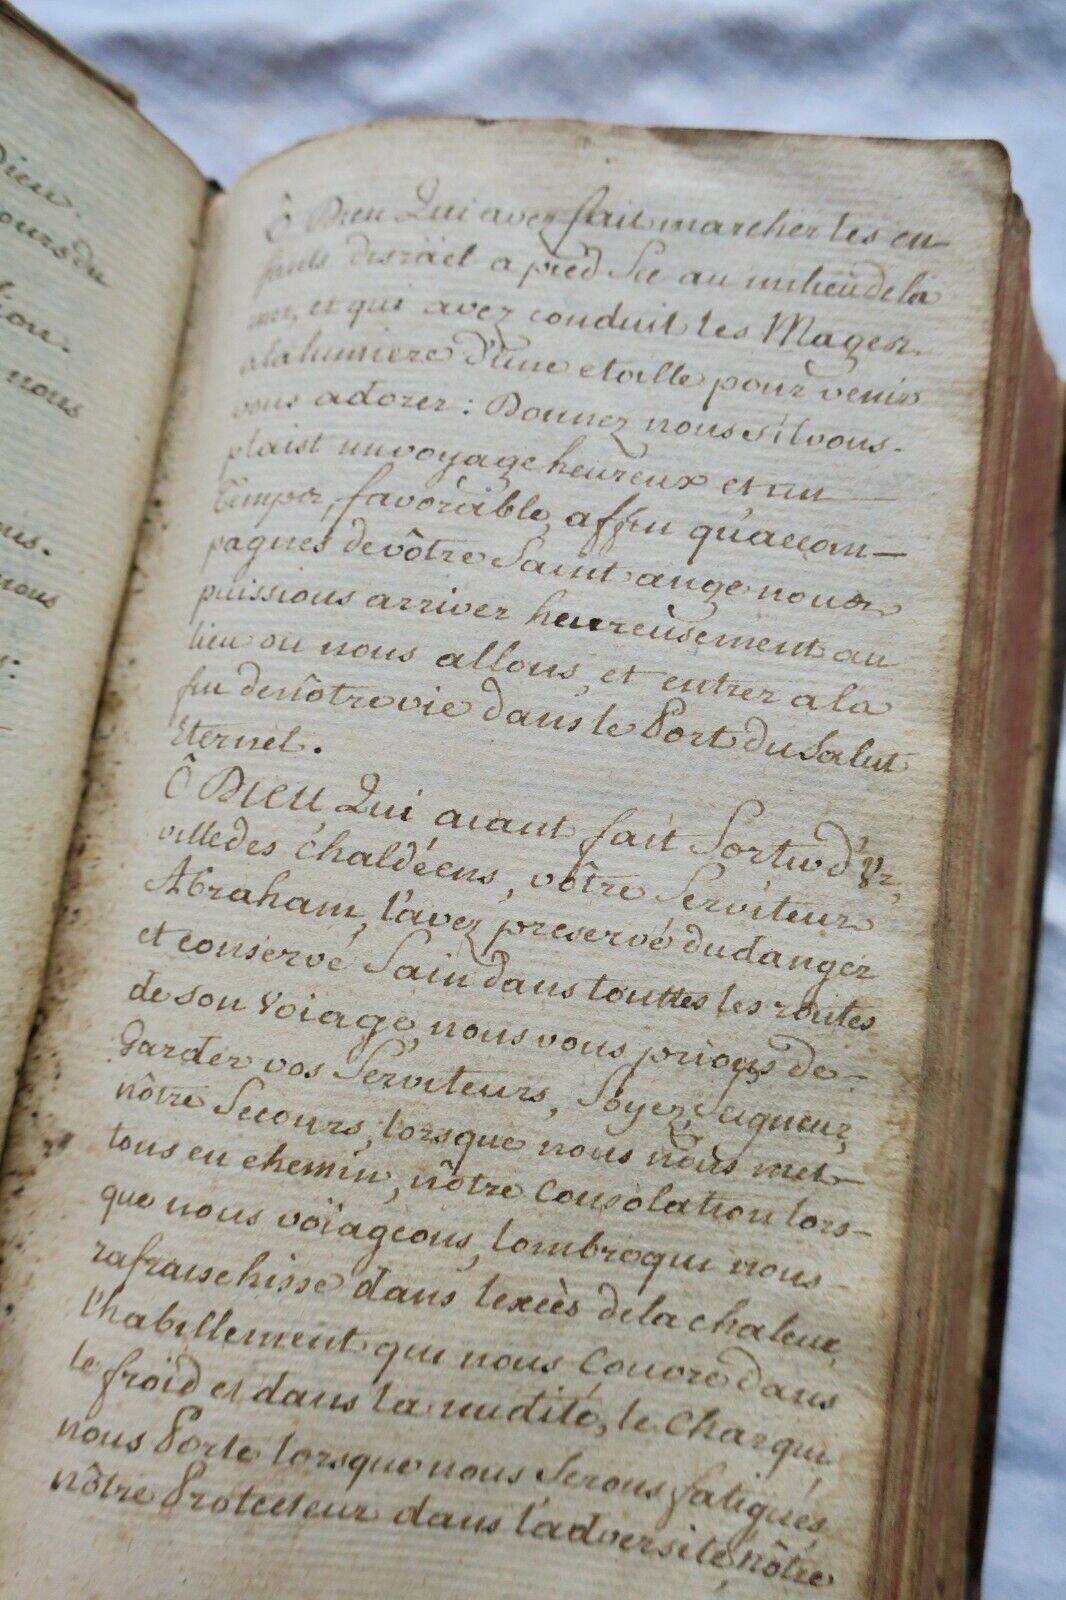 Dieu.
ours du
tion.
nous
ns.
nous
Ô Dieu Qui avez fait marcher les en-
fants disräel a pied Sec au milieu de la
mer, et qui avez conduit les Mages
a la lumiere d'une etoille pour venir
vous adorer : Donnez nous s'il vous-
plaist un voyage heureux et un
temps, favorable, affin qu'accom-
pagnés de vôtre Saint ange nous
puissions arriver heureusement au
lieu ou nous allons, et entrer a la
fin de nôtre vie dans le Port du Salut
Eternel.
Ô Dieu, Qui aiant fait Sortir d'Ur,
ville des Chaldéens, vôtre Serviteur
Abraham, l'avez preservé du danger
et conservé Sain dans touttes les routes
de son Voiage, nous vous prions de-
Garder vos Serviteurs, Soyez, Seigneur,
nôtre Secours, lorsque nous nous met-
tons en chemin, nôtre Consolation lors-
que nous voïageons, lombre qui nous-
rafraischisse dans lexcès de la chaleur,
l'habillement qui nous Couvre dans
le froid et dans la nudité, le Char qui
nous Porte lorsque nous Serons fatigués,
nôtre Protecteur dans l'adversité, nôtre